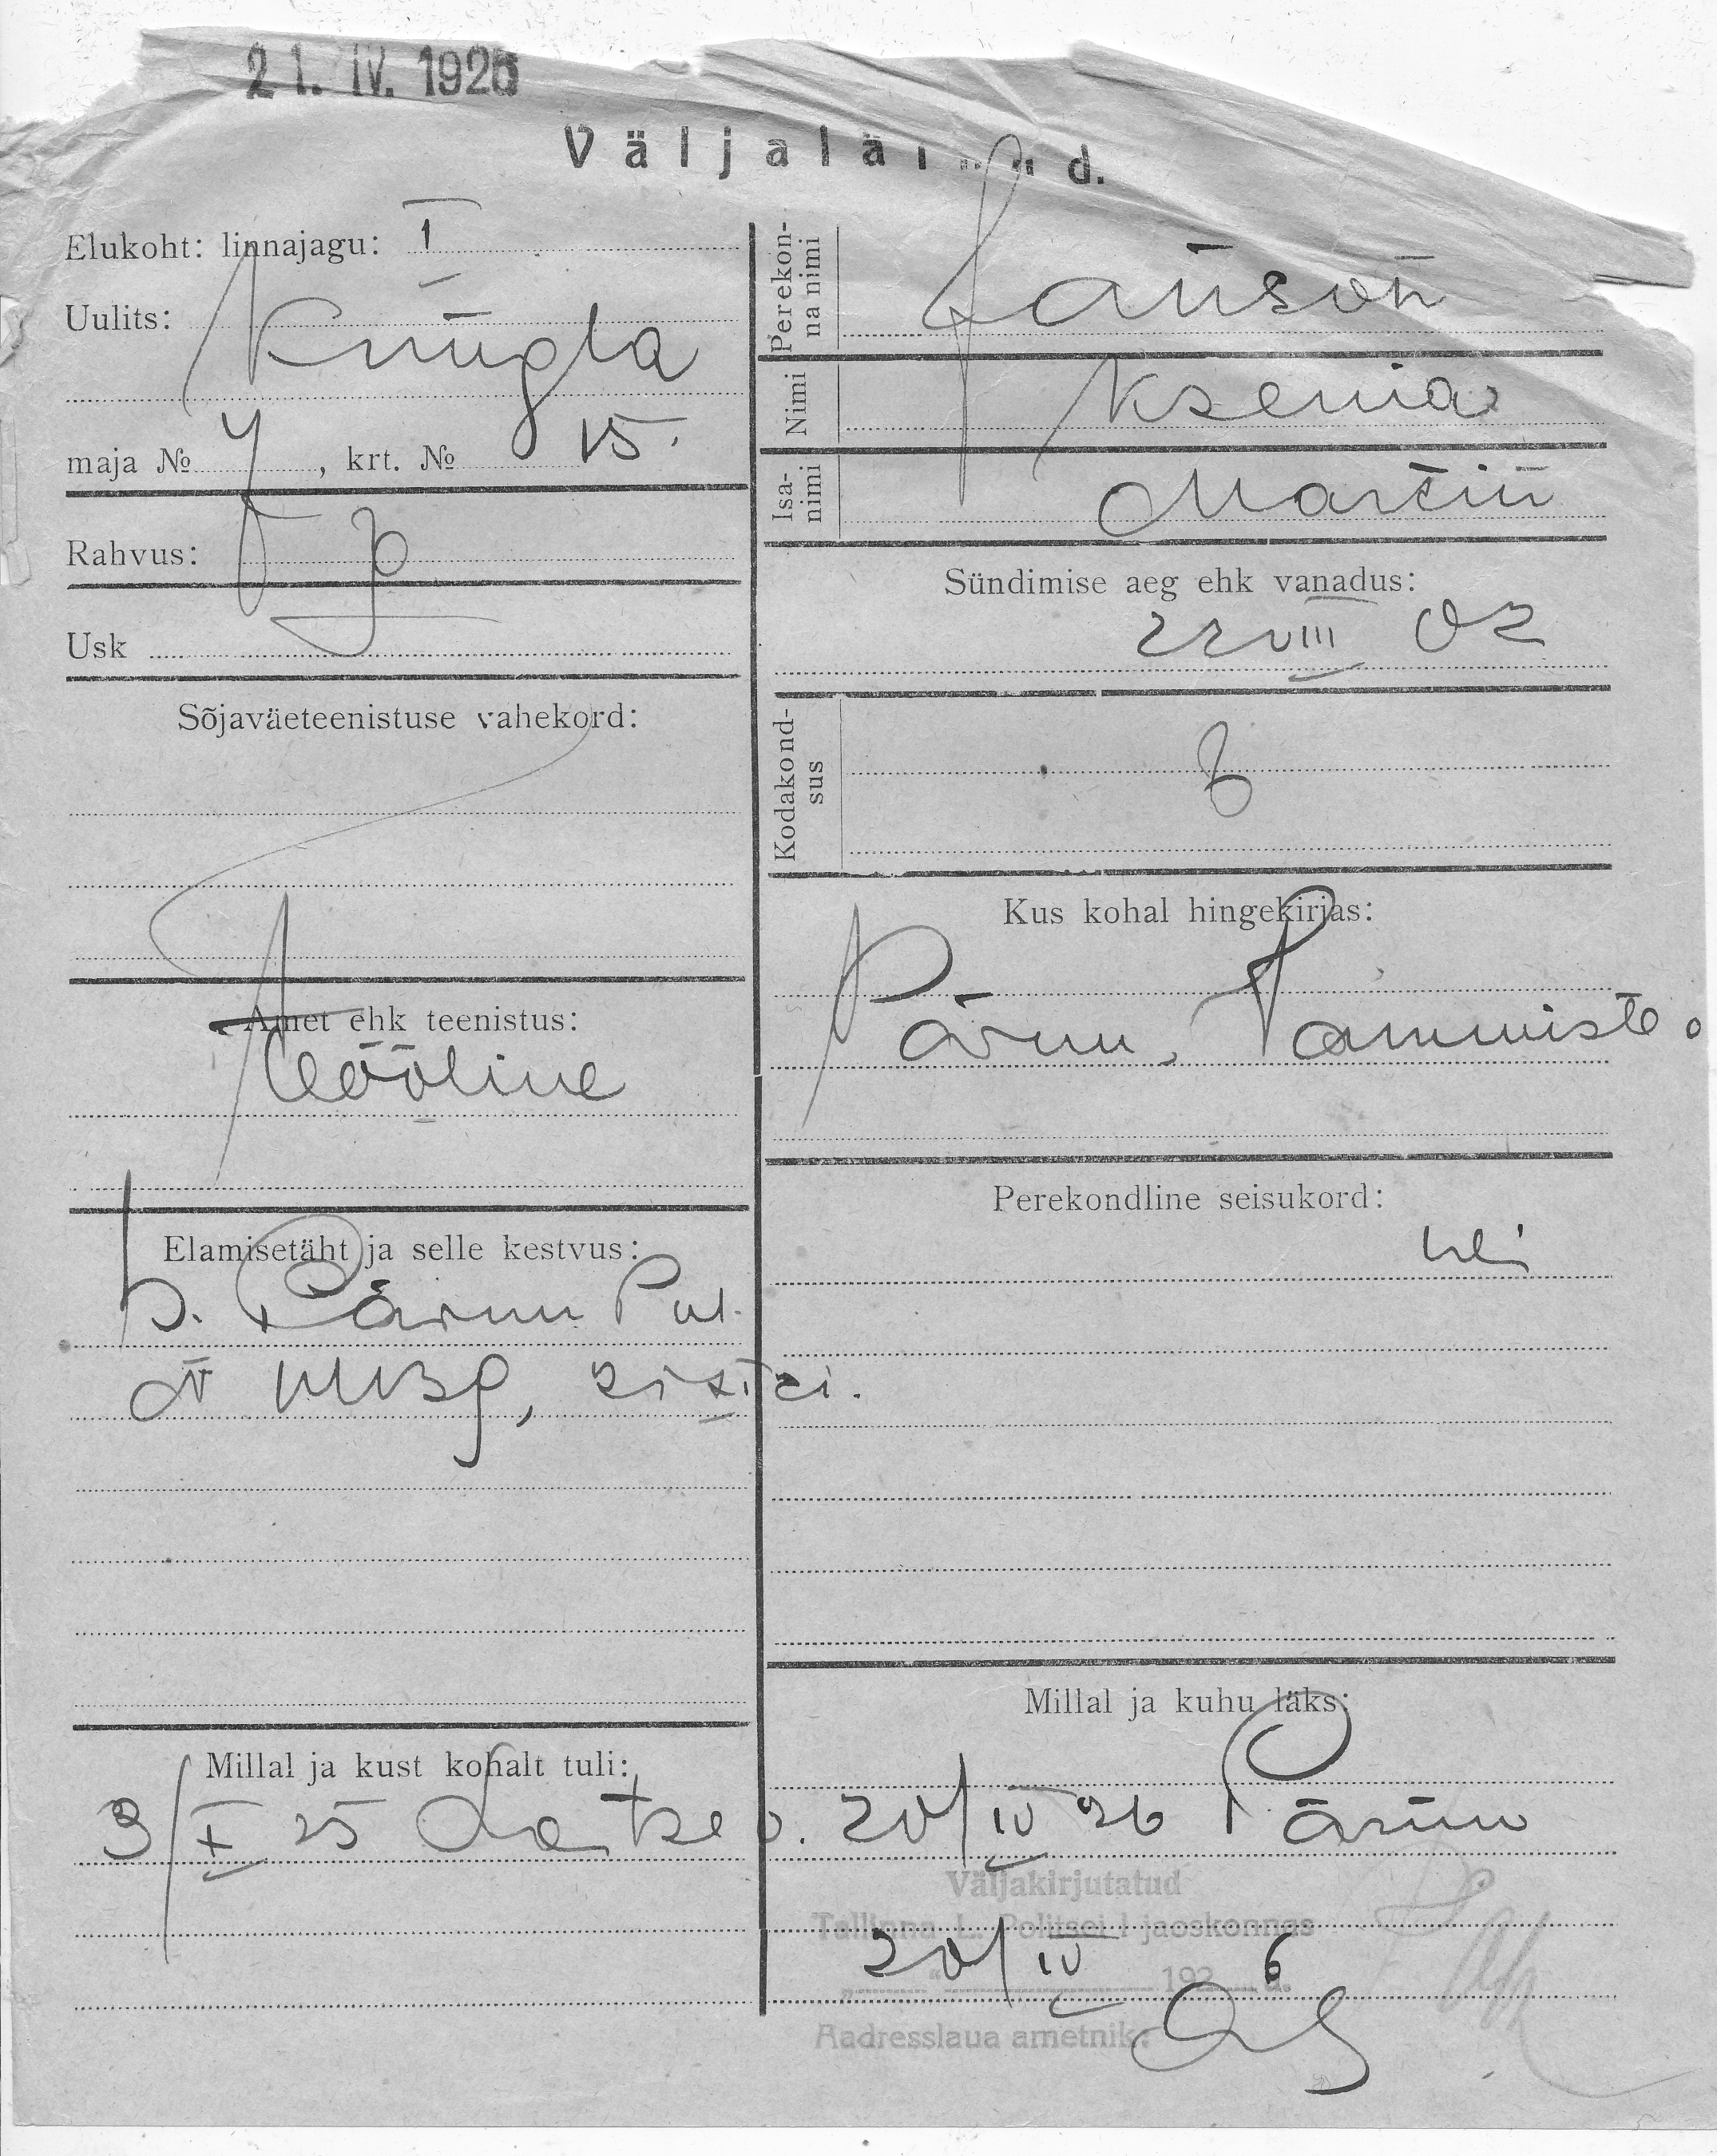 21. IV. 1926
Väljaläinud.
Elukoht: linnajagu: I
Uulits: Kuugla
maja № 7, krt. № 15.
Rahvus:
Usk
Sõjaväeteenistuse vahekord:
Amet ehk teenistus:
Tööline
Elamisetäht ja selle kestvus:
Pärnu Pol.
Millal ja kust kohalt tuli:
3/X 25
Perekon-
na nimi
Janson
Nimi
Ksenia
Isa-
nimi
Martin
Sündimise aeg ehk vanadus:
22 VIII 02
Kodakond-
sus
Kus kohal hingekirjas:
Pärnu,
Perekondline seisukord:
Millal ja kuhu läks:
20/IV 26 Pärnu
Väljakirjutatud
Tallinna L. Politsei I jaoskonnas
20/IV 1926 a.
Aadresslaua ametnik: